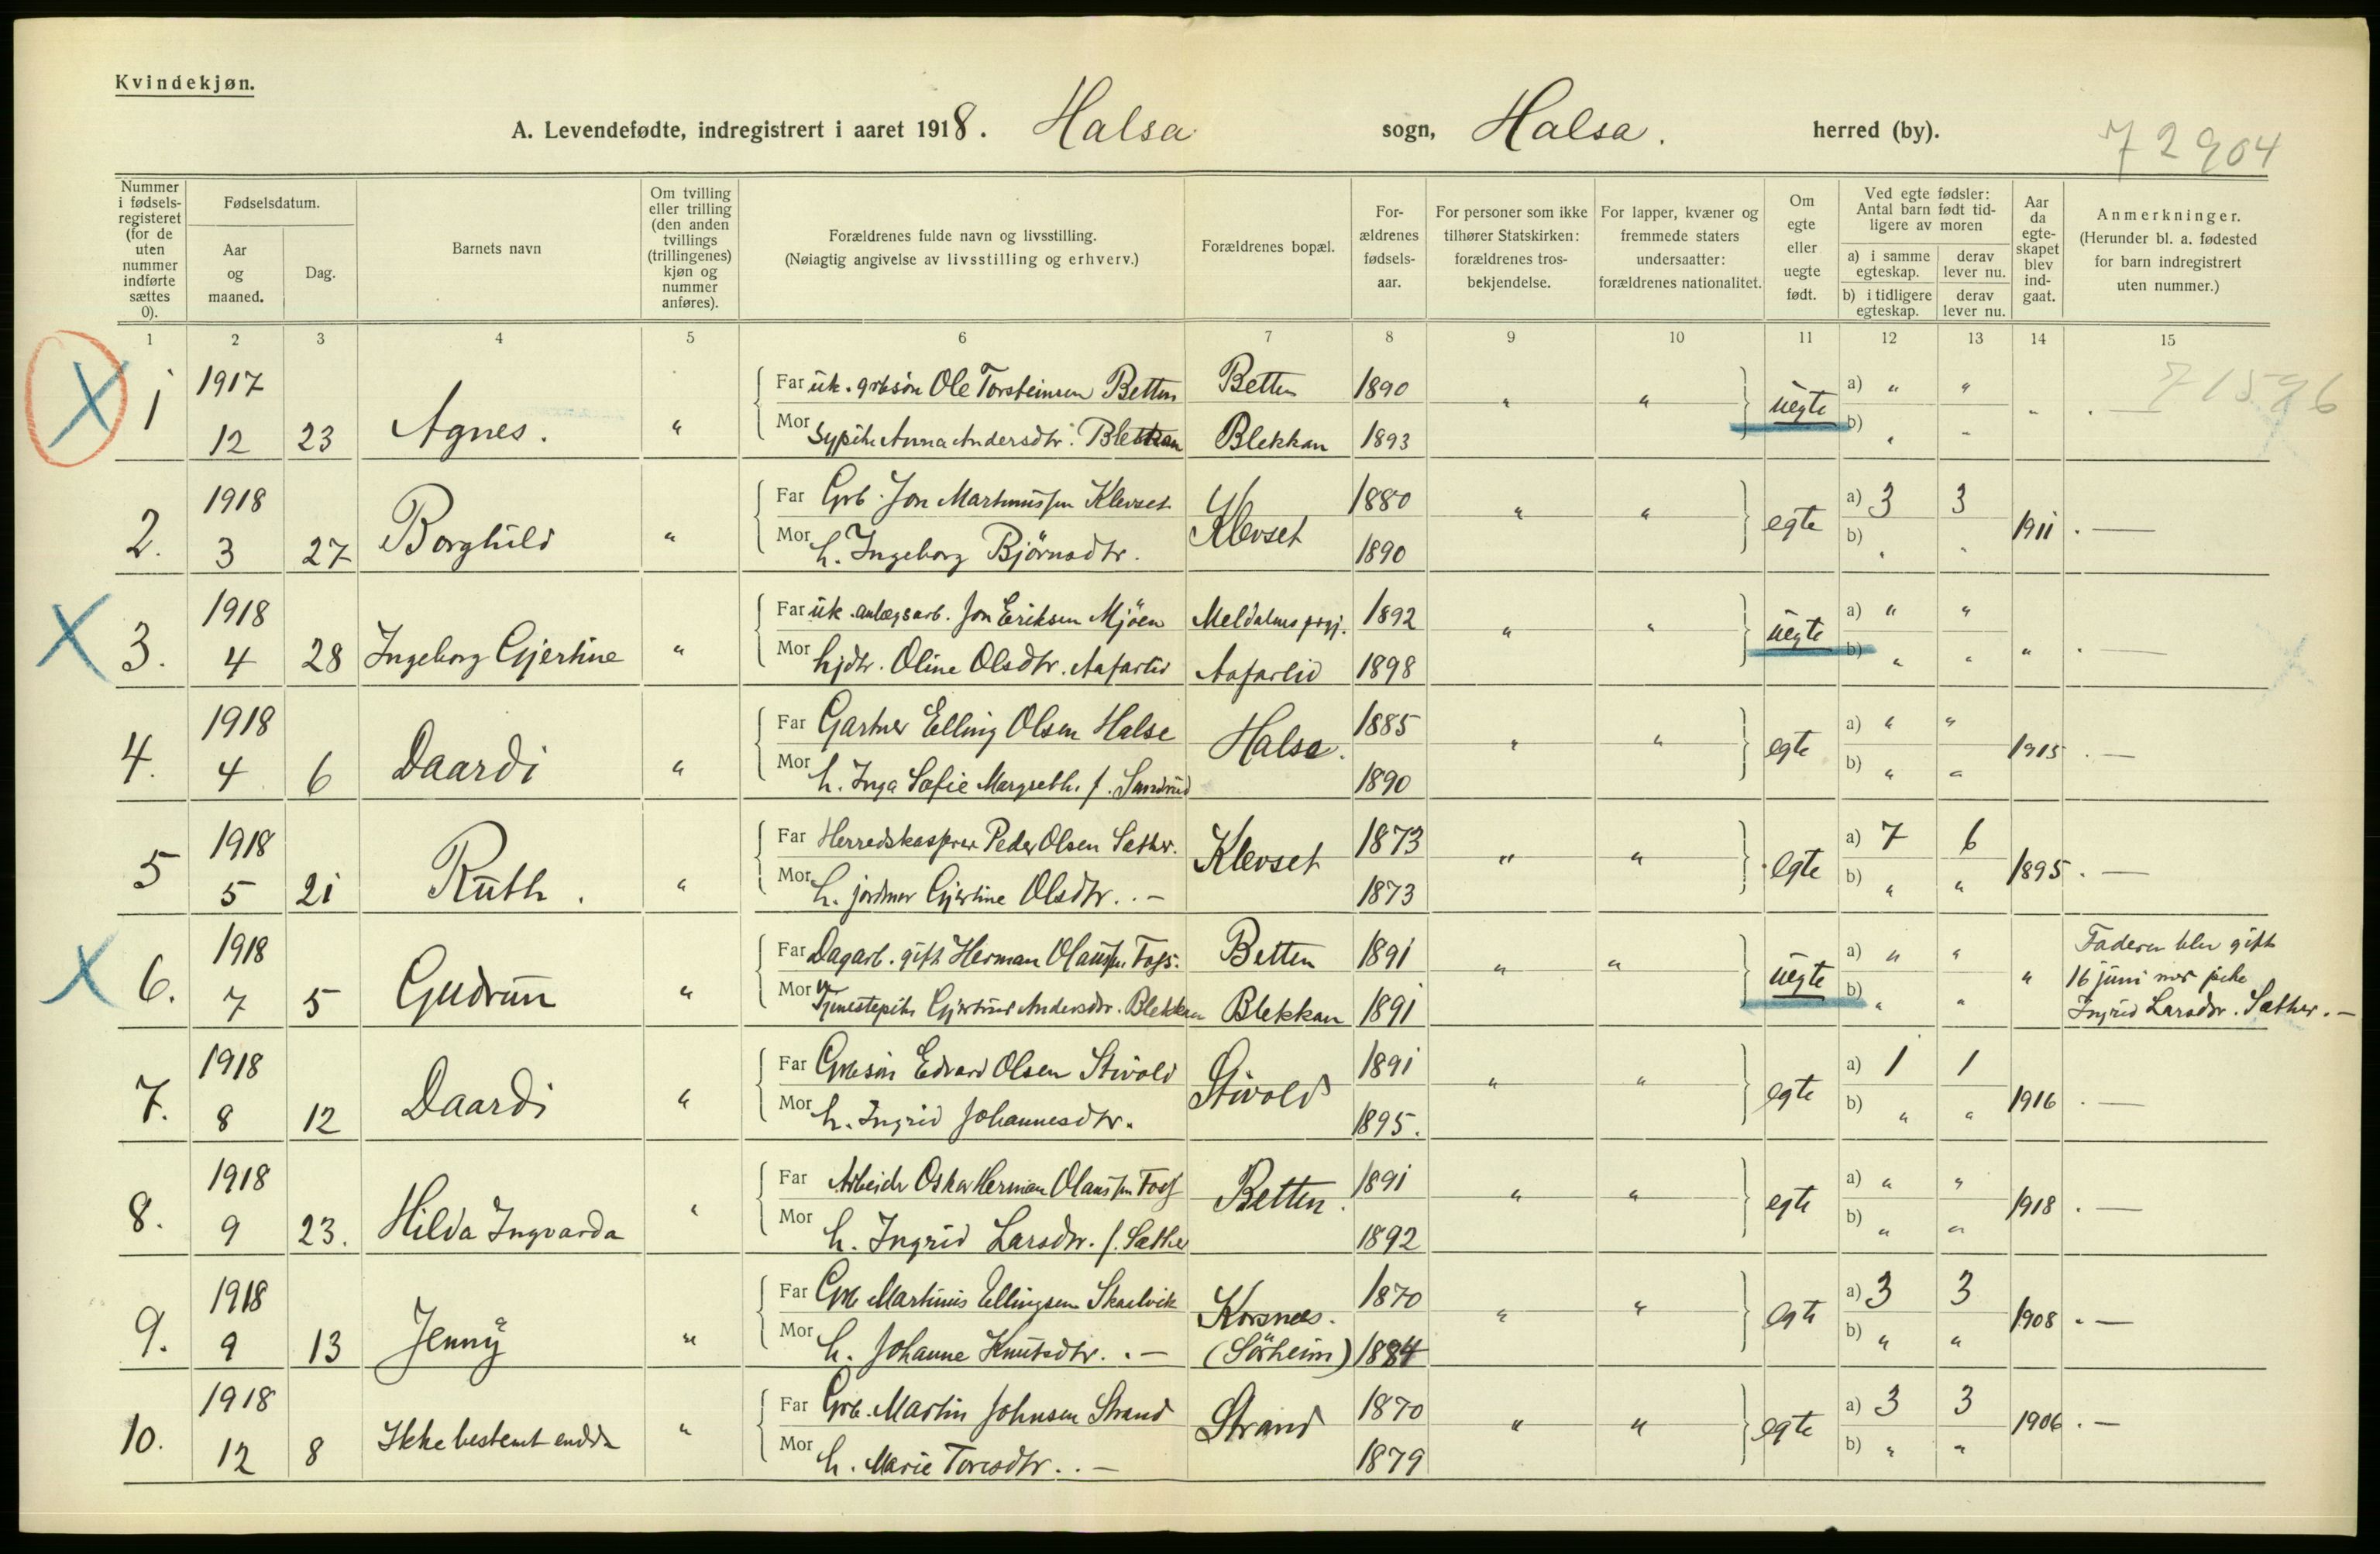 Kvindekjøn.
A. Levendefødte, indregistrert i aaret 1918. Halsa sogn, Halsa. herred (by).
72904
Nummer i fødselsregisteret (for de uten nummer indførte sættes 0).
Fødselsdatum.
Aar og maaned.
Dag.
Barnets navn
Om tvilling eller trilling (den anden tvillings (trillingenes) kjøn og nummer anføres).
Forældrenes fulde navn og livsstilling.
(Nøiagtig angivelse av livsstilling og erhverv.)
Forældrenes bopæl.
For-ældrenes fødsels-aar.
For personer som ikke tilhører Statskirken: forældrenes tros-bekjendelse.
For lapper, kvæner og fremmede staters undersaatter: forældrenes nationalitet.
Om egte eller uegte født.
Ved egte fødsler: Antal barn født tid-ligere av moren
a) i samme egteskap.
derav lever nu.
b) i tidligere egteskap.
derav lever nu.
Aar da egte-skapet blev ind-gaat.
Anmerkninger.
(Herunder bl. a. fødested for barn indregistrert uten nummer.)
1 2 3 4 5 6 7 8 9 10 11 12 13 14 15
X 1 1917 12 23 Agnes. "
Far uk. grbsøn Ole Torsteinsen Betten Betten 1890 " " uegte a) " "
Mor Sypike Anna Andersdtr. Blekkan Blekkan 1893 b) " "
71596
2. 1918 3 27 Borghild "
Far Grb. Jon Martinussen Klevset Klevset 1880 " " egte a) 3 3 1911 . —
Mor h. Ingeborg Björnsdtr. 1890 b) " "
X 3. 1918 4 28 Ingeborg Gjertine "
Far uk. anlægsarb. Jon Eriksen Mjöen Meldalens prgj. 1892 " " uegte a) " " " . —
Mor hjdtr. Oline Olsdtr. Aafarlid Aafarlid 1898 b) " "
4. 1918 4 6 Daardi "
Far Gartner Elling Olsen Halse Halse. 1885 " " egte a) " " 1915 . —
Mor h. Inga Sofie Margreth. f. Sandrud 1890 b) " "
5 1918 5 21 Ruth. "
Far Herredskasserer Peder Olsen Sæther. Klevset 1873 " " egte a) 7 6 1895 . —
Mor h. jordmor Gjertine Olsdtr. . — 1873 b) " "
X 6. 1918 7 5 Gudrun "
Far Dagarb. gift Herman Olaussen Foss. Betten 1891 " " uegte a) " " "
Mor Tjenestepike Gjertrud Andersdtr. Blekkan Blekkan 1891 b) " "
Faderen blev gift
16 juni med pike
Ingrid Larsdtr. Sæther. —
7. 1918 8 12 Daardi "
Far Grbsøn Edvard Olsen Stivold Stivold 1891 " " egte a) 1 1 1916 . —
Mor h. Ingrid Johannesdtr. 1895. b) " "
8. 1918 9 23. Hilda Ingvarda "
Far Arbeider Oskar Herman Olaussen Foss Betten. 1891 " " egte a) " " 1918 . —
Mor h. Ingrid Larsdtr. f. Sæther 1892 b) " "
9. 1918 9 13 Jenny "
Far Grb Martinus Ellingsen Skaelvik Korsnæs. 1870 " " egte a) 3 3 1908 . —
Mor h. Johanne Knutsdtr. . — (Sörheim) 1884 b) " "
10. 1918 12 8 Ikke bestemt endda "
Far Grb. Martin Johnsen Strand Strand 1870 " " egte a) 3 3 1906 . —
Mor h. Marie Toresdtr. . — 1879 b) " "